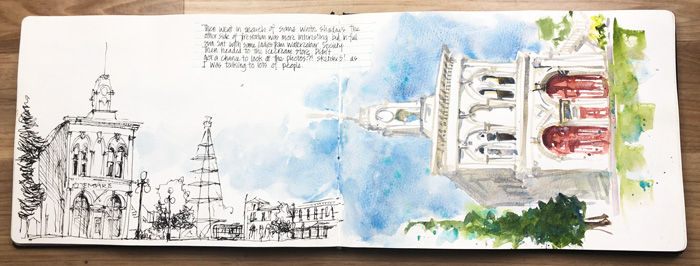 Then went in search of some winter shadows. The
other side of fire station was more interesting but in full
sun. Sat with some ladies from Watercolour Society
Then headed to the icecream store. Didn't
get a chance to look at the photos or sketches! as
I was talking to lots of people.